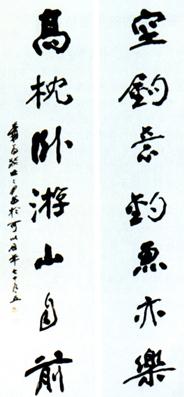 空鈎意釣魚亦樂
高枕卧游山自前